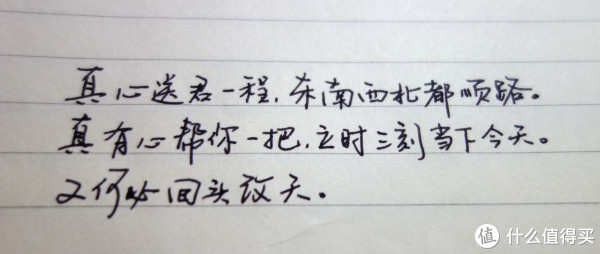 真心送君一程，东南西北都顺路。
真有心帮你一把，立时三刻当下今天。
又何必回头改天。
值 什么值得买